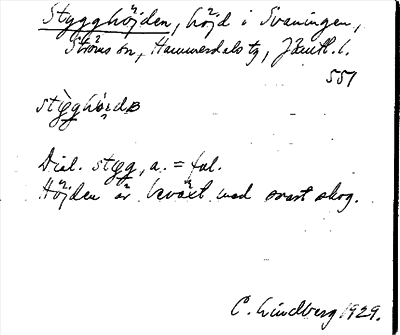 Stygghöjden, höjd i Svaningen,
Ströms sn, Hammerdals tg, Jämtl. l.
551
Dial. styg̀g, a. = ful.
Höjden är beväxt med svart skog.
C. Lindberg 1929.